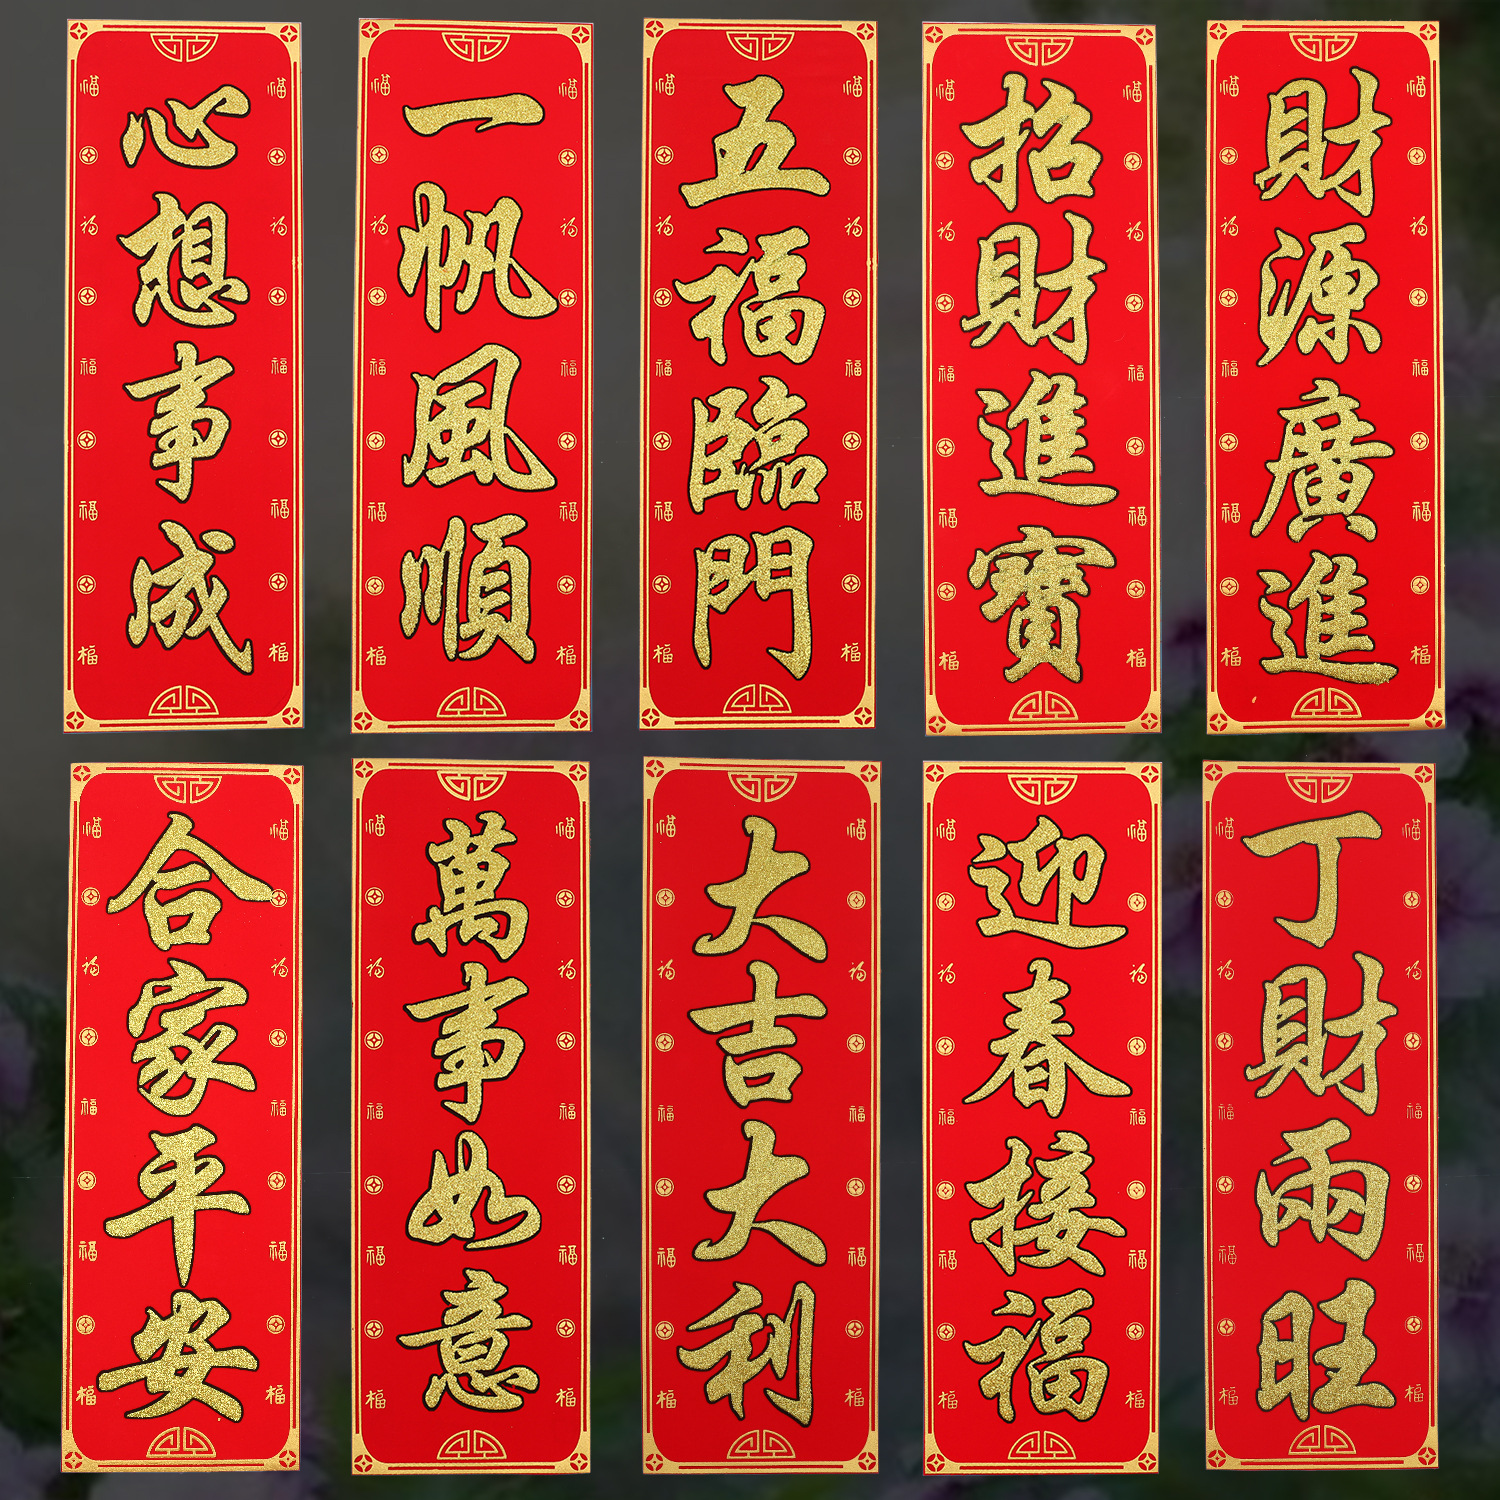 心想事成
一帆風順
五福臨門
招財進寶
財源廣進
合家平安
萬事如意
大吉大利
迎春接福
丁財兩旺